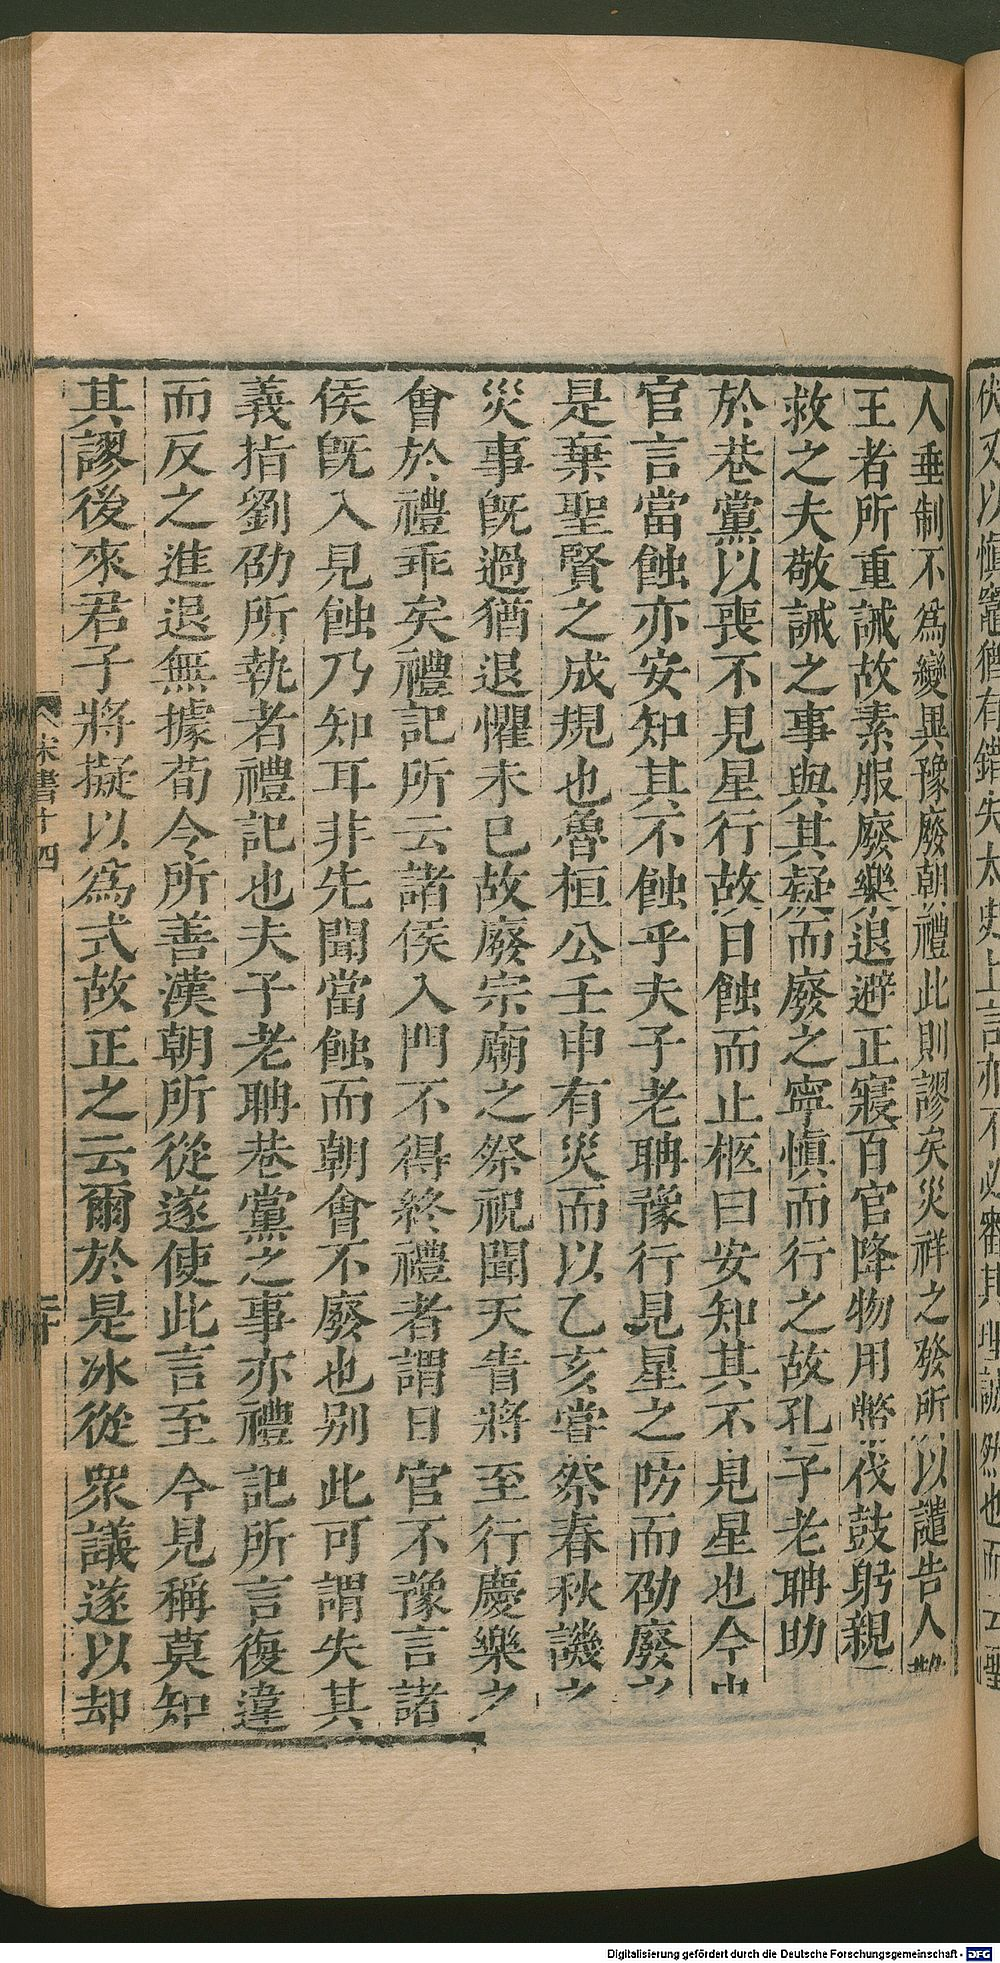 伏又以愼竈猶有錯失太史上言亦不必審其理誠然也而云聖
人垂制不爲變異豫廢朝禮此則謬矣災祥之發所以譴告人
王者所重誡故素服廢樂退避正寢百官降物用幣伐鼓躬親
救之夫敬誡之事與其疑而廢之寧愼而行之故孔子老聃助
於巷黨以喪不見星行故日蝕而止柩曰安知其不見星也今史
官言當蝕亦安知其不蝕乎夫子老聃豫行見星之防而劭廢之
是棄聖賢之成規也魯桓公壬申有災而以乙亥嘗祭春秋譏之
災事旣過猶退懼未已故廢宗廟之祭況聞天眚將至行慶樂之
會於禮乖矣禮記所云諸侯入門不得終禮者謂日官不豫言諸
侯旣入見蝕乃知耳非先聞當蝕而朝會不廢也别此可謂失其
義指劉劭所執者禮記也夫子老聃巷黨之事亦禮記所言復違
而反之進退無據荀令所善漢朝所從遂使此言至今見稱莫知
其謬後來君子將擬以爲式故正之云爾於是冰從衆議遂以却
宋書十四
二十
Digitalisierung gefördert durch die Deutsche Forschungsgemeinschaft - DFG